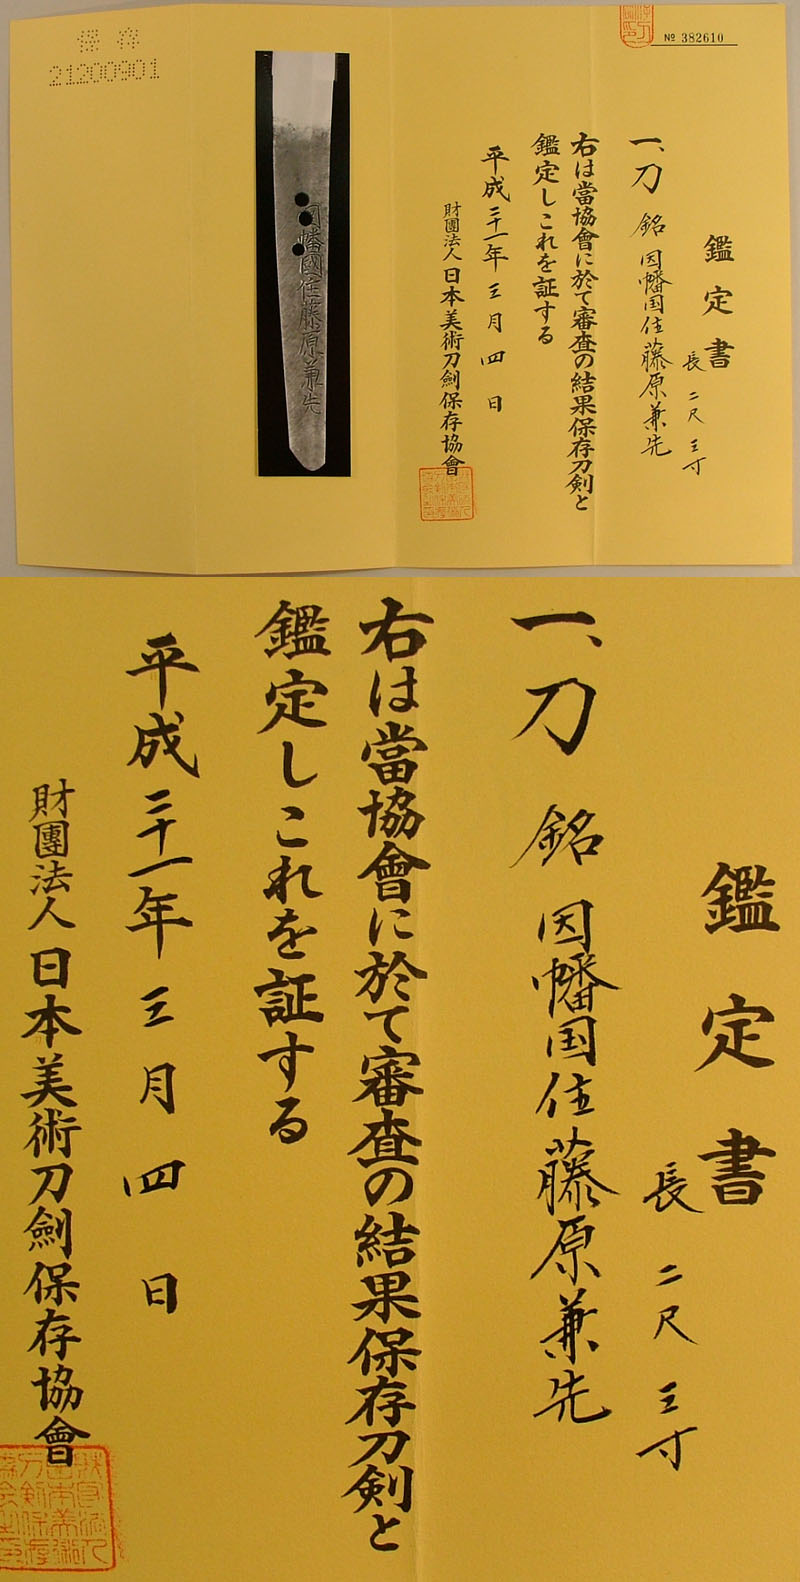 № 382610
鑑定書
長 二尺三寸
一、刀 銘 因幡国住藤原兼先
右は當協會に於て審査の結果保存刀剣と
鑑定しこれを証する
平成二十一年三月四日
財團法人日本美術刀劍保存協會
因幡國住藤原兼先
保存
21200901
鑑定書
長 二尺三寸
一、刀 銘 因幡国住藤原兼先
右は當協會に於て審査の結果保存刀剣と
鑑定しこれを証する
平成二十一年三月四日
財團法人日本美術刀劍保存協會